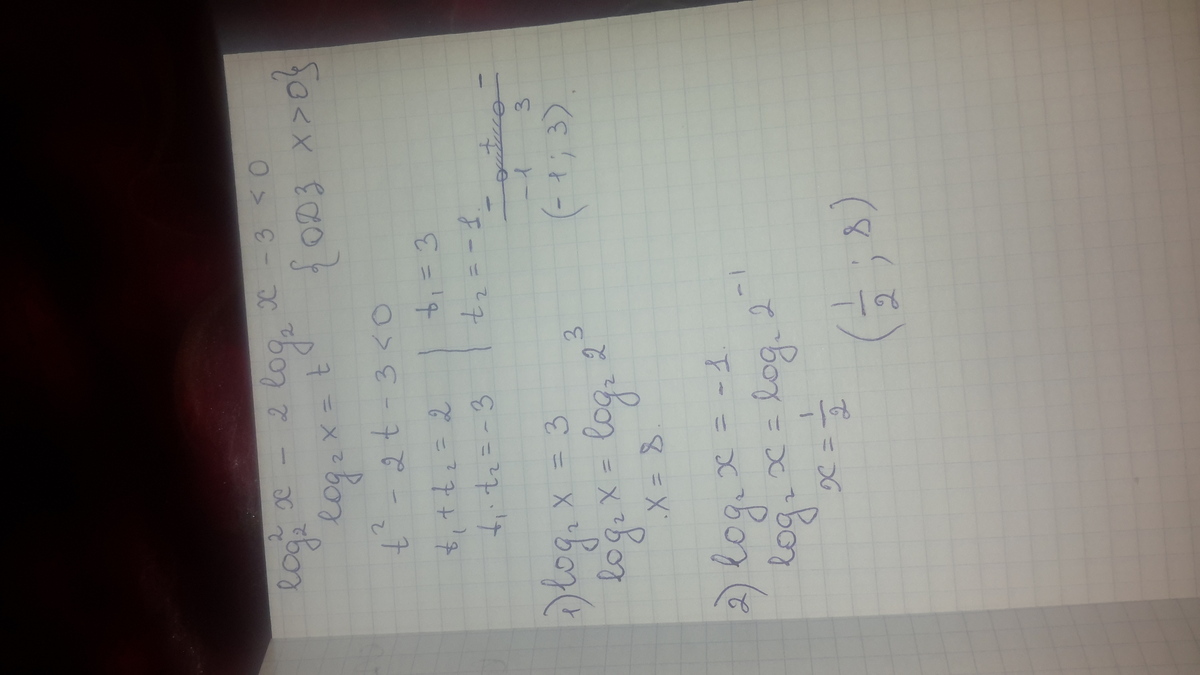 log₂²x - 2 log₂ x - 3 < 0
log₂ x = t {ODЗ x > 0}
t² - 2t - 3 < 0
t₁ + t₂ = 2 | t₁ = 3
t₁ · t₂ = -3 | t₂ = -1.
- + -
-1 3
(-1; 3).
1) log₂ x = 3
log₂ x = log₂ 2³
x = 8.
2) log₂ x = -1.
log₂ x = log₂ 2⁻¹
x = 1/2
(1/2 ; 8)